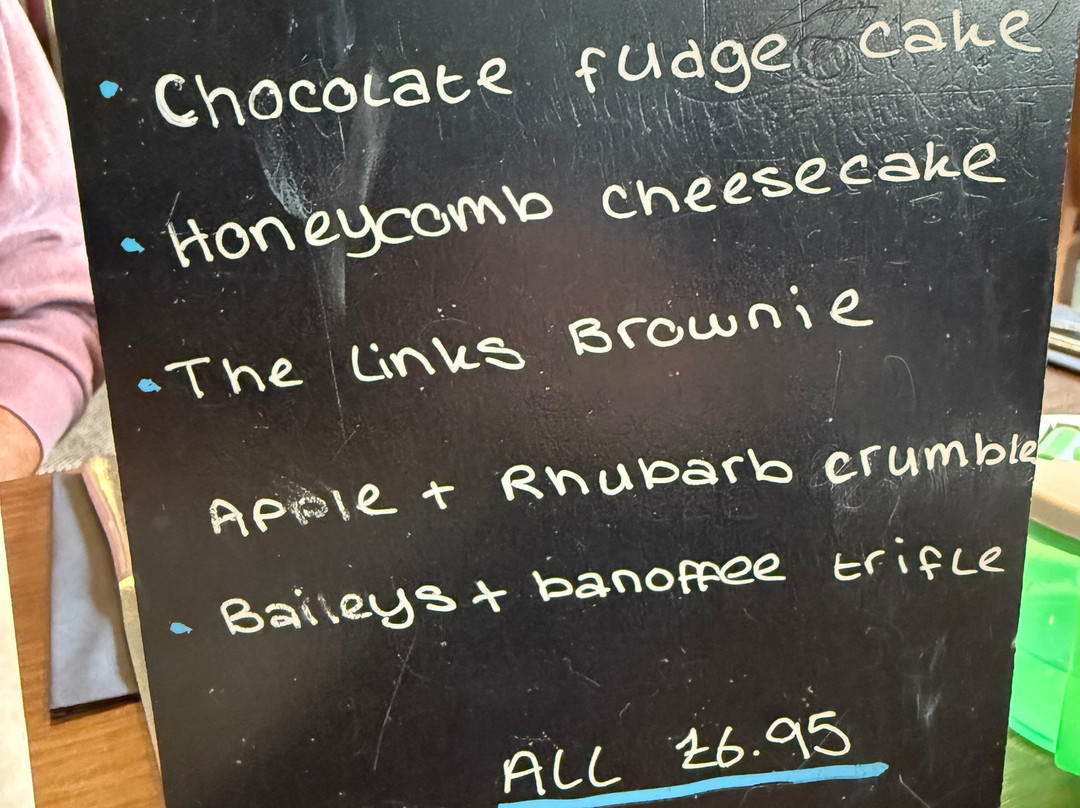 • Chocolate fudge cake
• Honeycomb cheesecake
• The Links Brownie
Apple + Rhubarb crumble
• Baileys + banoffee trifle
ALL £6.95